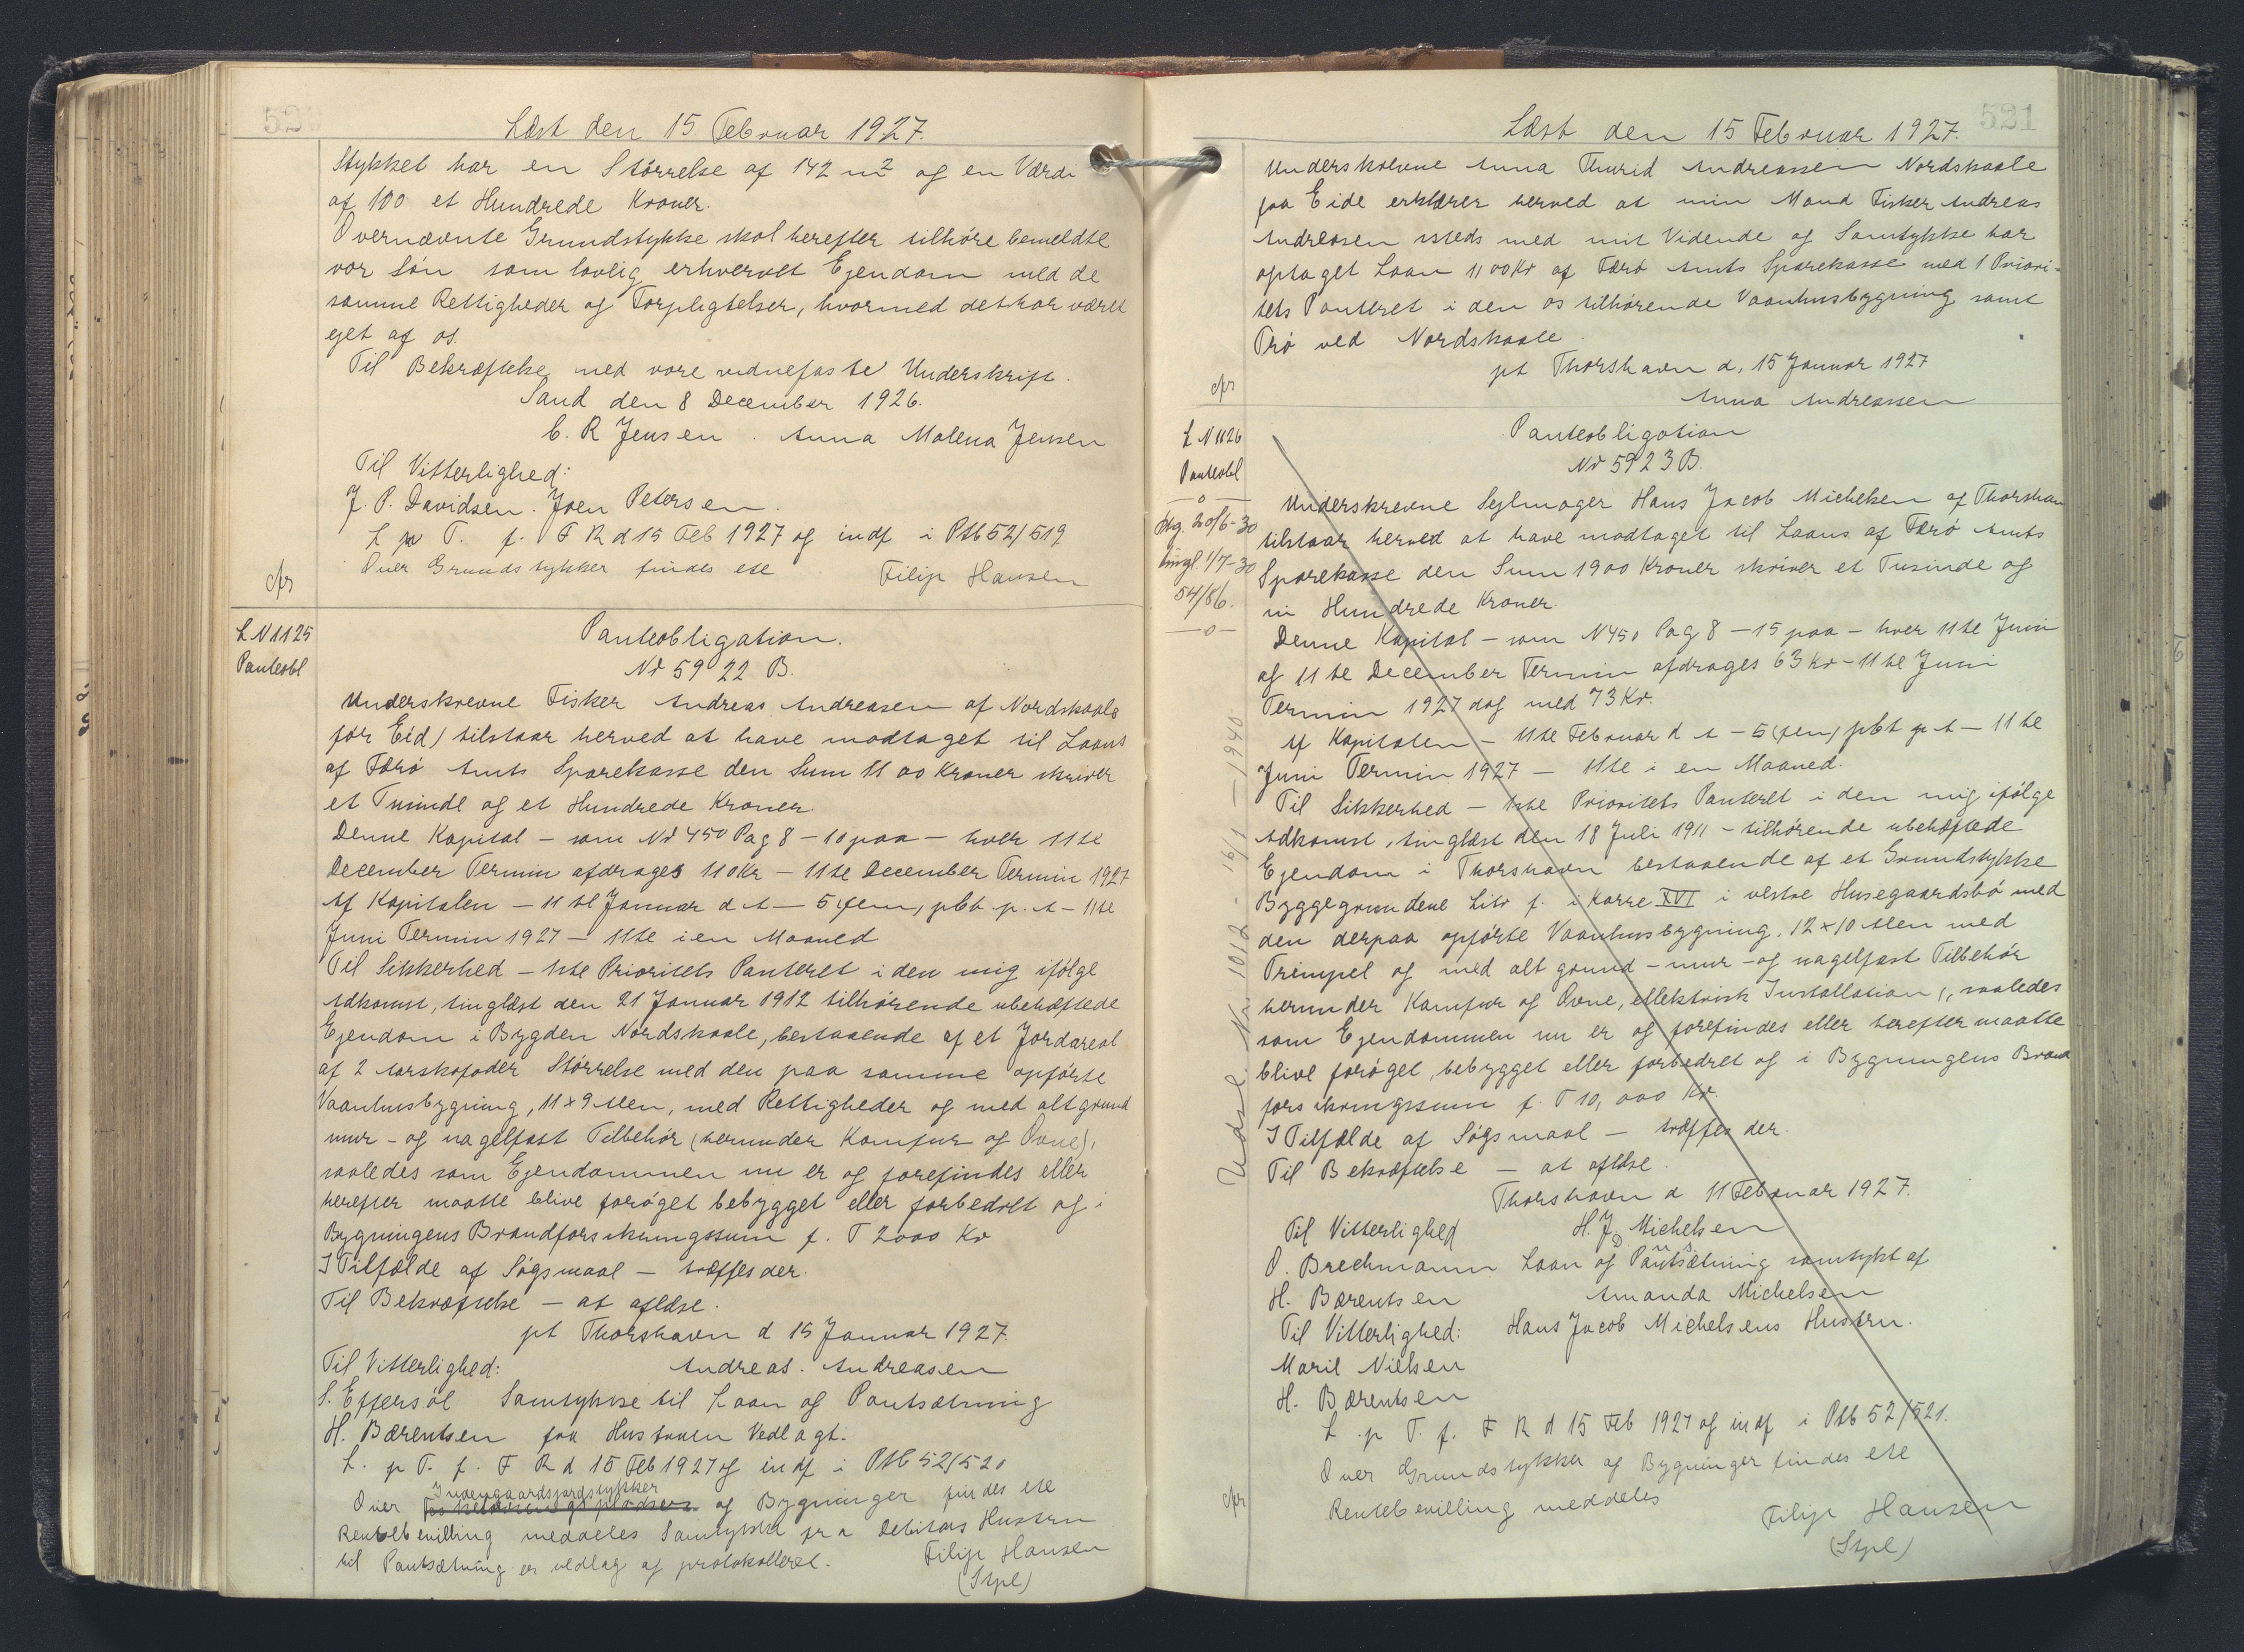 520
Læst den 15 Februar 1927.
Stykket har en Störrelse af 142 m² og en Værdi
af 100 et Hundrede Kroner.
Overnævnte Grundstykke skal herefter tilhöre bemeldte
vor Sön som lovlig erhvervet Ejendom med de
samme Rettigheder og Forpligtelser, hvormed det har været
ejet af os.
Til Bekræftelse med vore vidnefaste Underskrift.
Sand den 8 December 1926.
C. R Jensen. Anna Malena Jensen
Til Vitterlighed:
J. P. Davidsen. Joen Petersen.
L p T. f. F R d 15 Feb 1927 og indf i Ptb 52/519
Over Grundstykker findes ete
Filip Hansen
cfr
L N 1125
Panteobl
Panteobligation.
Nr 5922 B.
Underskrevne Fisker Andreas Andreasen af Nordskaale
för Eid) tilstaar herved at have modtaget til Laans
af Færö Amts Sparekasse den Sum 1100 Kroner skriver
et Tusinde og et Hundrede Kroner.
Denne Kapital - som Nr 450 Pag 8 - 10 paa - hver 11te
December Termin afdrages 110 Kr - 11te December Termin 1927
Af Kapitalen - 11te Januar d A - 5 (fem) pCt p. A - 11te
Juni Termin 1927 - 11te i en Maaned
Til Sikkerhed - 1ste Prioritets Panteret i den mig ifölge
Adkomst, tinglæst den 21 Januar 1912 tilhörende ubehæftede
Ejendom i Bygden Nordskaale, bestaaende af et Jordareal
af 2 Störrelse med den paa samme opförte
Vaanhusbygning, 11 x 9 Alen, med Rettigheder og med alt grund
mur - og nagelfast Tilbehör (herunder Komfur og Ovne),
saaledes som Ejendommen nu er og forefindes eller
herefter maatte blive foröget bebygget eller forbedret og i
Bygningens Brandforsikringssum f. T 2000 Kr
I Tilfælde af Sögsmaal - træffes der.
Til Bekræftelse - at aflæse.
pt Thorshavn d 15 Januar 1927.
Til Vitterlighed: Andreas. Andreasen
S. Effersöl Samtykke til Laan og Pantsætning
H. Bærentsen fra Hustruen Vedlagt.
L. p T. f. F R d 15 Feb 1927 og indf i Ptb 52/520
Indengaardsjordstykker
Over og Bygninger findes ete
Rentebevilling meddeles Samtykke fra Debitors Hustru
til Pantsætning er vedlag og protokolleret. Filip Hansen
(Stpl)
521
Læst den 15 Februar 1927.
Underskrevne Anna Thurid Andreassen Nordskaale
paa Eide erklærer herved at min Mand Fisker Andreas
Andreasen isteds med mit Vidende og Samtykke har
optaget Laan 1100 Kr af Færö Amts Sparekasse med 1 Priori-
tets Panteret i den os tilhörende Vaanhusbygning samt
Trö ved Nordskaale.
pt Thorshavn d. 15 Januar 1927
Anna Andreassen
cfr
L N 1126
Panteobl
—o—
Afg. 20/6-30
tingl. 1/7-30
54/86.
—o—
Panteobligation
Nr 5923 B.
Underskrevne Sejlmager Hans Jacob Michelsen af Thorshavn
tilstaar herved at have modtaget til Laans af Færö Amts
Sparekasse den Sum 1900 Kroner skriver et Tusinde og
ni Hundrede Kroner.
Denne Kapital - som N 450 Pag 8 - 15 paa - hver 11te Juni
og 11te December Termin afdrages 63 Kr - 11te Juni
Termin 1927 dog med 73 Kr.
Af Kapitalen - 11te Februar d A - 5 (fem) pCt p. A - 11te
Juni Termin 1927 - 11te i en Maaned.
Til Sikkerhed - 1ste Prioritets Panteret i den mig ifölge
Adkomst, tinglæst den 18 Juli 1911 - tilhörende ubehæftede
Ejendom i Thorshavn bestaaende af et Grundstykke
Byggegrundene Litr f. i Karre XVI i vestre Husegaardsbö med
den derpaa opförte Vaanhusbygning. 12 x 10 Alen med
Trempel og med alt grund - mur - og nagelfast Tilbehör
herunder Komfur og Ovne, ellektrisk Installation), saaledes
som Ejendommen nu er og forefindes eller herefter maatte
blive foröget, bebygget eller forbedret og i Bygningens Brand
forsikringssum f. T 10,000 Kr.
I Tilfælde af Sögsmaal - træffes der.
Til Bekræftelse - at aflæse.
Thorshavn d 11 Februar 1927.
Til Vitterlighed H. J. Michelsen
O. Brechmann Laan og Pantsætning samtykt af
H. Bærentsen Amanda Michelsen
Til Vitterlighed: Hans Jacob Michelsens Hustru.
Maril Nielsen
H. Bærentsen
L. p T. f. F R d 15 Feb 1927 og indf i Ptb 52/521.
Over Grundstykker og Bygninger findes ete
Rentebevilling meddeles
Filip Hansen
(Stpl)
cfr
Udsl. Nr. 1012 - 16/1 - 1940